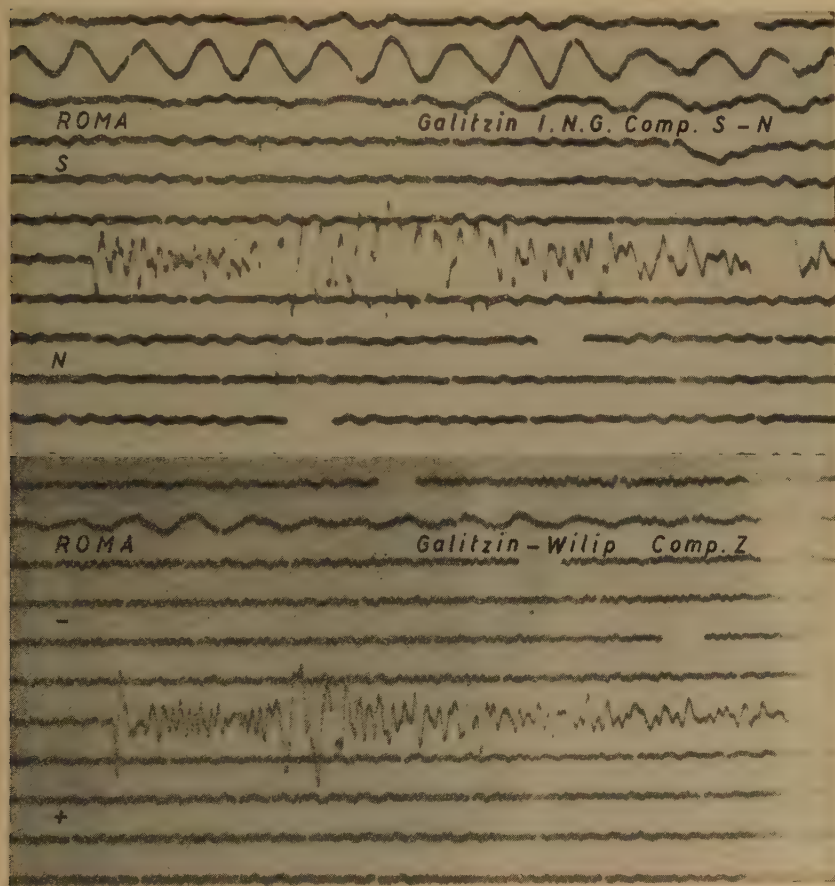 ROMA Galitzin I.N.G. Comp. S-N
S
N
ROMA Galitzin-Wilip Comp. Z
-
+